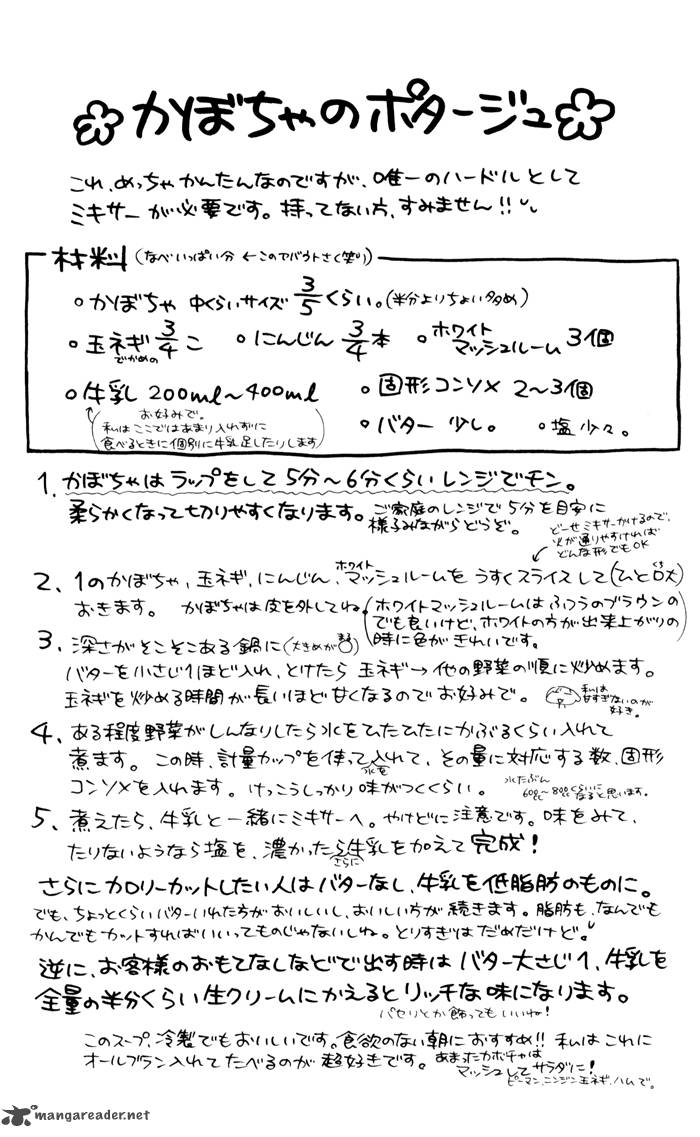 かぼちゃのポタージュ
これ、めっちゃかんたんなのですが、唯一のハードルとして
ミキサーが必要です。持ってない方、すみません!!
材料(なべいっぱい分 ←このアバウトさ(笑))
○かぼちゃ 中くらいサイズ 3/5くらい。(半分よりちょい多め)
○玉ネギ 3/4こ ○にんじん 3/4本 ○ホワイトマッシュルーム 3個
でかめの
○牛乳 200ml～400ml ○固形コンソメ 2～3個
お好みで。
私はここではあまり入れずに
食べるときに個別に牛乳足したりします
○バター 少し。 ○塩 少々。
1. かぼちゃはラップをして5分～6分くらいレンジでチン。
柔らかくなって切りやすくなります。ご家庭のレンジで5分を目安に
様子みながらどうぞ。
どーせミキサーかけるので、
火が通りやすければ
どんな形でもOK
2. 1のかぼちゃ、玉ネギ、にんじん、ホワイトマッシュルームをうすくスライスして(ひと口大)
おきます。 かぼちゃは皮を外してね。
(ホワイトマッシュルームはふつうのブラウンの
でも良いけど、ホワイトの方が出来上がりの
時に色がきれいです。
3. 深さがそこそこある鍋に(大きめが)
バターを小さじ1ほど入れ、とけたら 玉ネギ→他の野菜の順に炒めます。
玉ネギを炒める時間が長いほど甘くなるのでお好みで。
私は
甘すぎないのが
好き。
4. ある程度野菜がしんなりしたら水をひたひたにかぶるくらい入れて
煮ます。 この時、計量カップを使って水を入れて、その量に対応する数、固形
コンソメを入れます。 けっこうしっかり味がつくくらい。
水たぶん
600cc～800ccくらいに
なると思います。
5. 煮えたら、牛乳と一緒にミキサーへ。やけどに注意です。味をみて、
たりないようなら塩を、濃かったらさらに牛乳を加えて完成!
さらにカロリーカットしたい人はバターなし、牛乳を低脂肪のものに。
でも、ちょっとくらいバターいれた方がおいしいし、おいしい方が続きます。脂肪も、なんでも
かんでもカットすればいいってものじゃないしね。とりすぎはだめだけど。
逆に、お客様のおもてなしなどで出す時は バター大さじ1、牛乳を
全量の半分くらい生クリームにかえるとリッチな味になります。
パセリとか飾ってもいいね!
このスープ、冷製でもおいしいです。食欲のない朝におすすめ!! 私はこれに
オールブラン入れてたべるのが超好きです。
あまったカボチャは
マッシュしてサラダに!
ピーマン、ニンジン、玉ネギ、ハムで。
mangareader.net